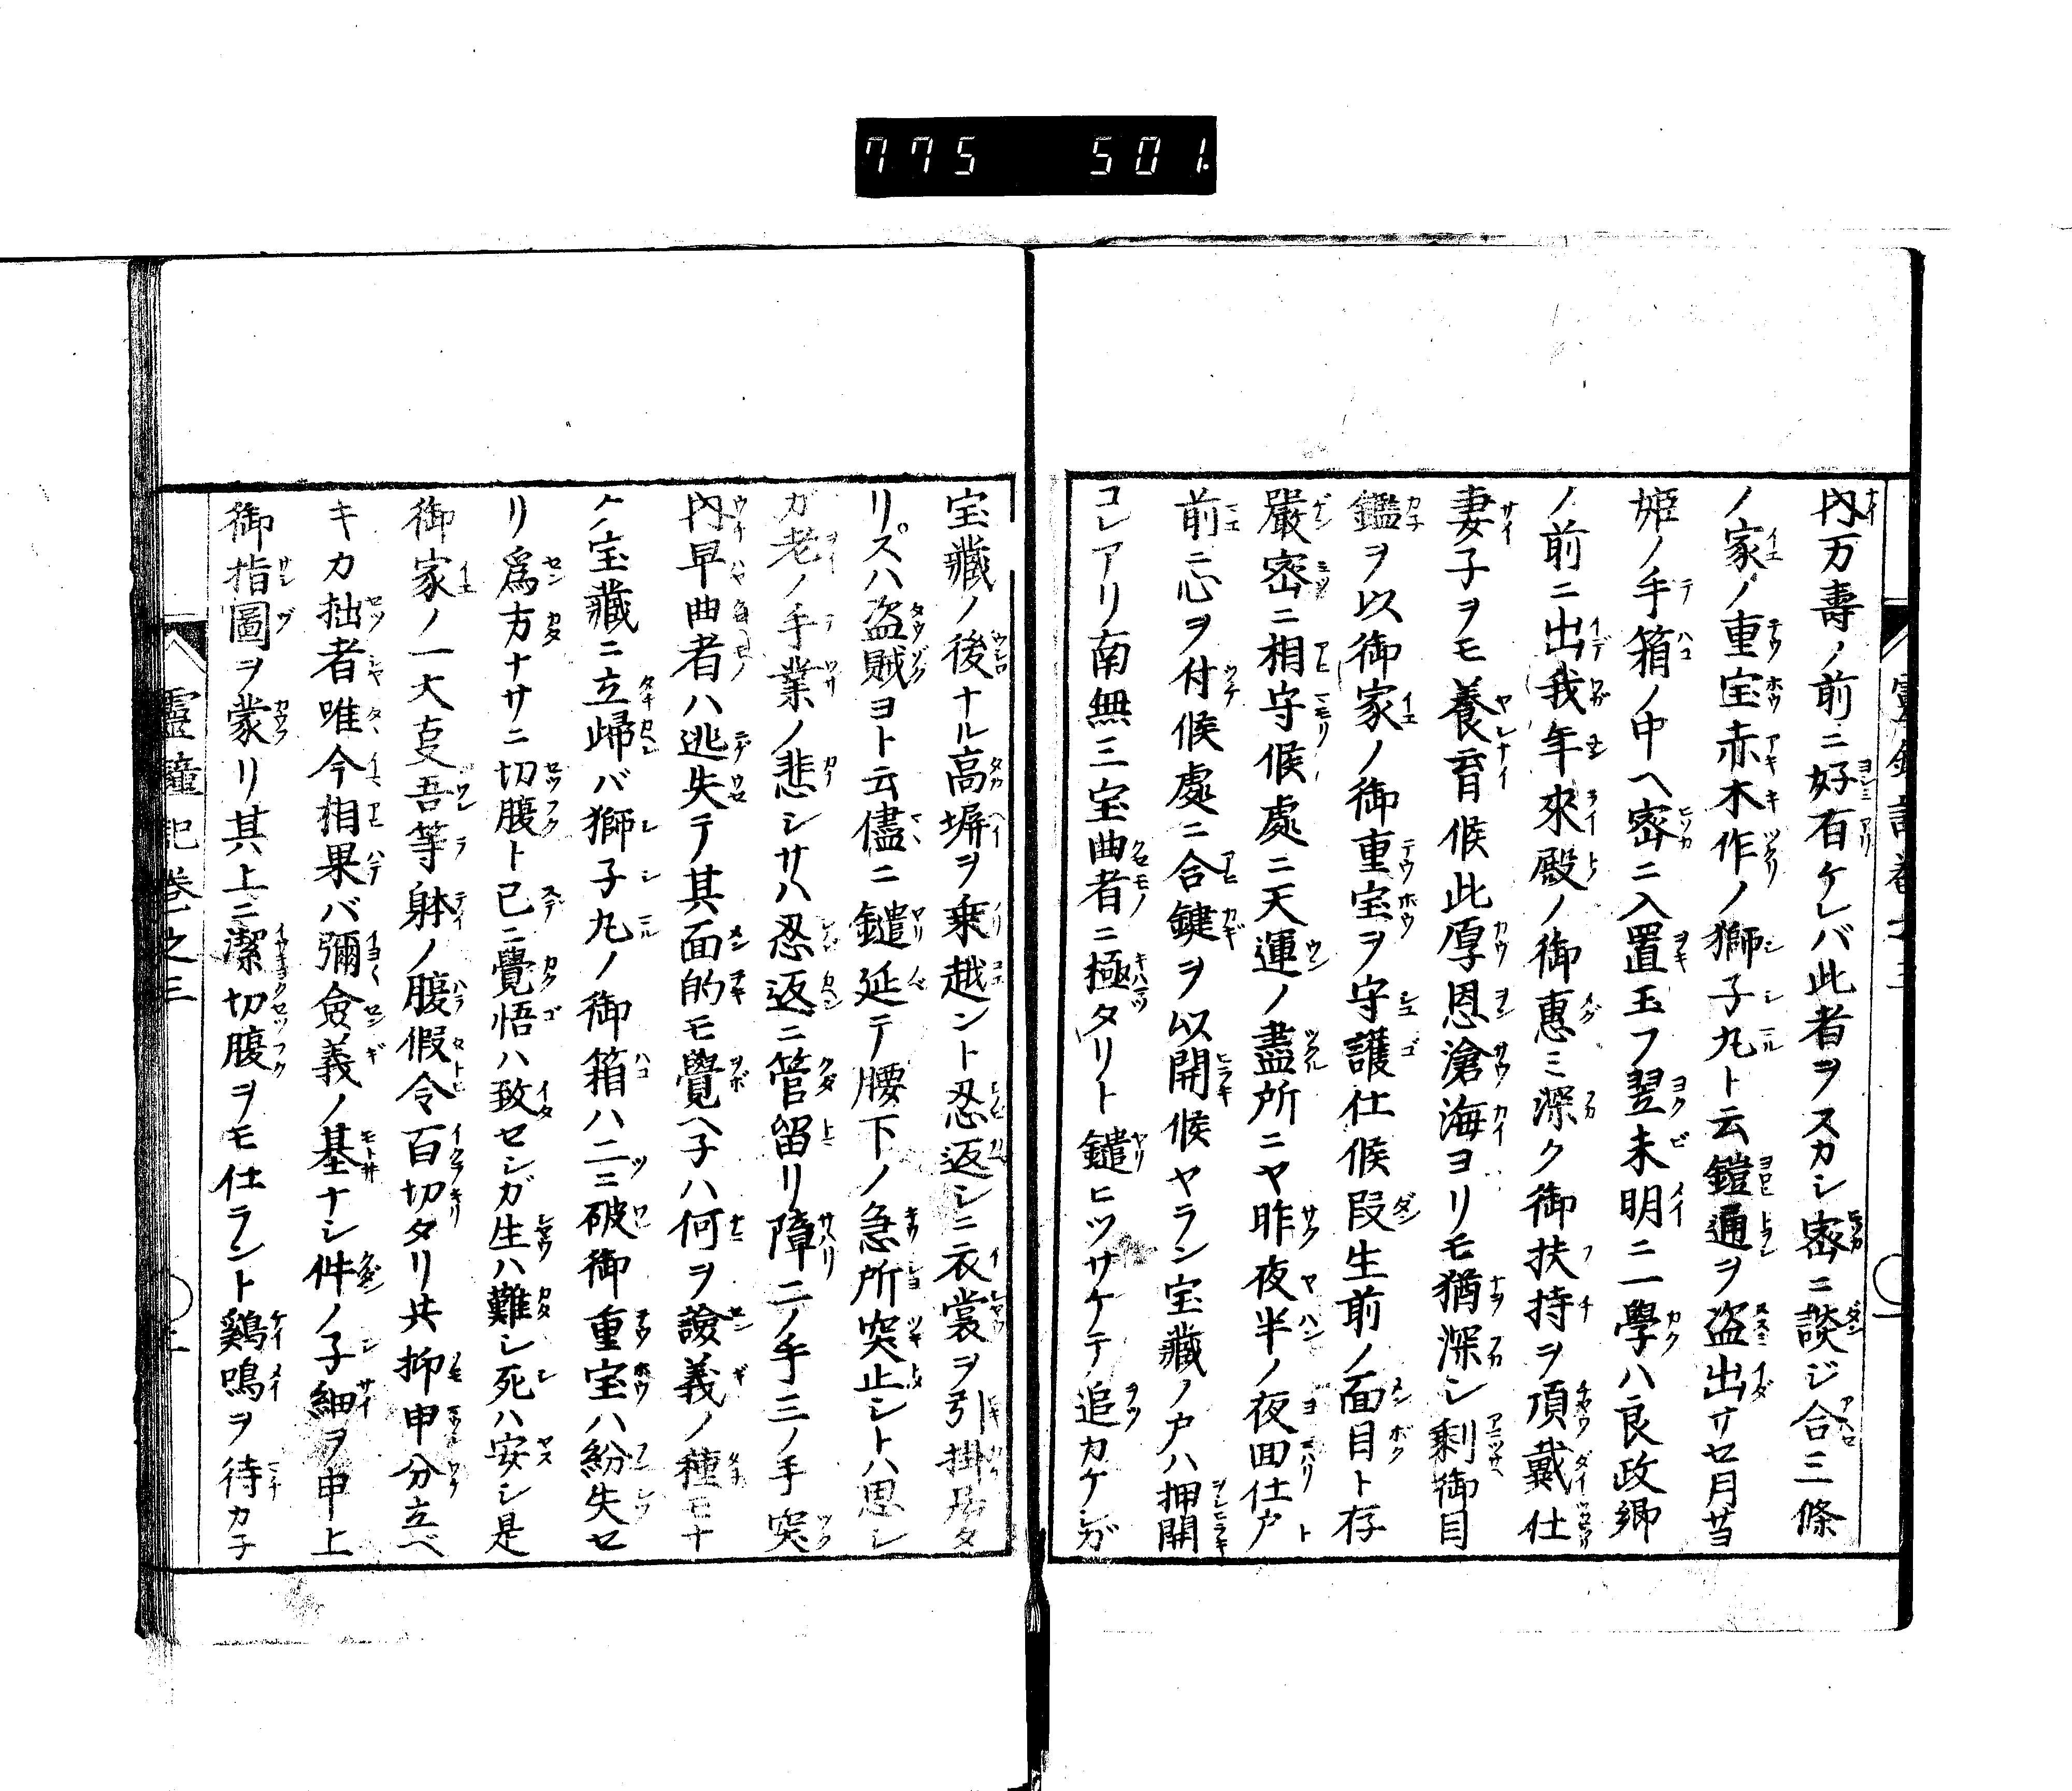 775 501.
内万壽ノ前ニ好有ケレバ此者ヲスカシ密ニ談ジ合三條
ノ家ノ重宝赤木作ノ獅子丸ト云鎧通ヲ盗出サセ月岑
姫ノ手箱ノ中ヘ密ニ入置玉フ翌未明ニ一學ハ良政卿
ノ前ニ出我年來殿ノ御惠ミ深ク御扶持ヲ頂戴仕
妻子ヲモ養育候此厚恩滄海ヨリモ猶深シ剰御目
鑑ヲ以御家ノ御重宝ヲ守護仕候段生前ノ面目ト存
嚴密ニ相守候處ニ天運ノ盡所ニヤ昨夜半ノ夜回仕戸
前ニ心ヲ付候處ニ合鍵ヲ以開候ヤラン宝藏ノ戸ハ押開
コレアリ南無三宝曲者ニ極タリト鑓ヒツサケテ追カケシガ
宝藏ノ後ナル高塀ヲ乗越ント忍返シニ衣裳ヲ引掛居タ
リスハ盗賊ヨト云儘ニ鑓延テ腰下ノ急所突止シトハ思シ
ガ老ノ手業ノ悲シサハ忍返ニ管留リ障二ノ手三ノ手突
内早曲者ハ迯失テ其面的モ覺ヘ子ハ何ヲ譣義ノ種モナ
ク宝藏ニ立歸バ獅子丸ノ御箱ハ二ニ破御重宝ハ紛失セ
リ爲方ナサニ切腹ト已ニ覺悟ハ致センガ生ハ難シ死ハ安シ是
御家ノ一大叓吾等躰ノ腹假令百切タリ共抑申分立ベ
キカ拙者唯今相果バ彌僉義ノ基ナシ件ノ子細ヲ申上
御指圖ヲ蒙リ其上ニ潔切腹ヲモ仕ラント鷄鳴ヲ待カ子
記巻之三